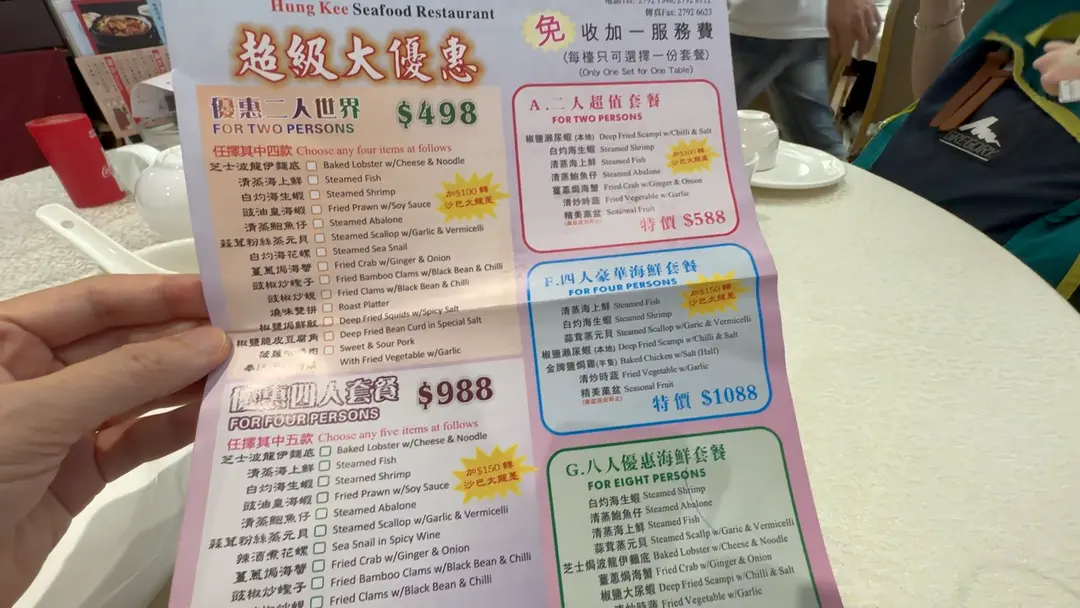 Hung Kee Seafood Restaurant
傳真Fax: 2792 6623
超級大優惠
免 收加一服務費
(每檯只可選擇一份套餐)
(Only One Set for One Table)
優惠二人世界 $498
FOR TWO PERSONS
任擇其中四款 Choose any four items at follows
芝士波龍伊麵底 Baked Lobster w/Cheese & Noodle
清蒸海上鮮 Steamed Fish
白灼海生蝦 Steamed Shrimp
豉油皇海蝦 Fried Prawn w/Soy Sauce
清蒸鮑魚仔 Steamed Abalone
蒜茸粉絲蒸元貝 Steamed Scallop w/Garlic & Vermicelli
白灼海花螺 Steamed Sea Snail
薑蔥焗海蟹 Fried Crab w/Ginger & Onion
豉椒炒蟶子 Fried Bamboo Clams w/Black Bean & Chilli
豉椒炒蜆 Fried Clams w/Black Bean & Chilli
燒味雙拼 Roast Platter
椒鹽焗鮮魷 Deep Fried Squids w/Spicy Salt
椒鹽脆皮豆腐角 Deep Fried Bean Curd in Special Salt
Sweet & Sour Pork
With Fried Vegetable w/Garlic
加$100轉
沙巴大龍躉
優惠四人套餐 $988
FOR FOUR PERSONS
任擇其中五款 Choose any five items at follows
芝士波龍伊麵底 Baked Lobster w/Cheese & Noodle
清蒸海上鮮 Steamed Fish
白灼海生蝦 Steamed Shrimp
豉油皇海蝦 Fried Prawn w/Soy Sauce
清蒸鮑魚仔 Steamed Abalone
蒜茸粉絲蒸元貝 Steamed Scallop w/Garlic & Vermicelli
辣酒煮花螺 Sea Snail in Spicy Wine
薑蔥焗海蟹 Fried Crab w/Ginger & Onion
豉椒炒蟶子 Fried Bamboo Clams w/Black Bean & Chilli
豉椒炒蜆 Fried Clams w/Black Bean & Chilli
加$150轉
沙巴大龍躉
A.二人超值套餐
FOR TWO PERSONS
椒鹽瀨尿蝦(本地) Deep Fried Scampi w/Chilli & Salt
白灼海生蝦 Steamed Shrimp
清蒸海上鮮 Steamed Fish
清蒸鮑魚仔 Steamed Abalone
薑蔥焗海蟹 Fried Crab w/Ginger & Onion
清炒時蔬 Fried Vegetable w/Garlic
精美菓盆 Seasonal Fruit
沙巴大龍躉
特價 $588
F.四人豪華海鮮套餐
FOR FOUR PERSONS
清蒸海上鮮 Steamed Fish
白灼海生蝦 Steamed Shrimp
蒜茸蒸元貝 Steamed Scallop w/Garlic & Vermicelli
椒鹽瀨尿蝦(本地) Deep Fried Scampi w/Chilli & Salt
金牌鹽焗雞(半隻) Baked Chicken w/Salt (Half)
清炒時蔬 Fried Vegetable w/Garlic
精美菓盆 Seasonal Fruit
加$150轉
沙巴大龍躉
特價 $1088
G.八人優惠海鮮套餐
FOR EIGHT PERSONS
白灼海生蝦 Steamed Shrimp
清蒸鮑魚仔 Steamed Abalone
清蒸海上鮮 Steamed Fish
蒜茸蒸元貝 Steamed Scallp w/Garic & Vermicelli
芝士焗波龍伊麵底 Baked Lobster w/Cheese & Noodle
薑蔥焗海蟹 Fried Crab w/Ginger & Onion
椒鹽大尿蝦 Deep Fried Scampi w/Chilli & Salt
清炒時蔬 Fried Vegetable w/Garlic